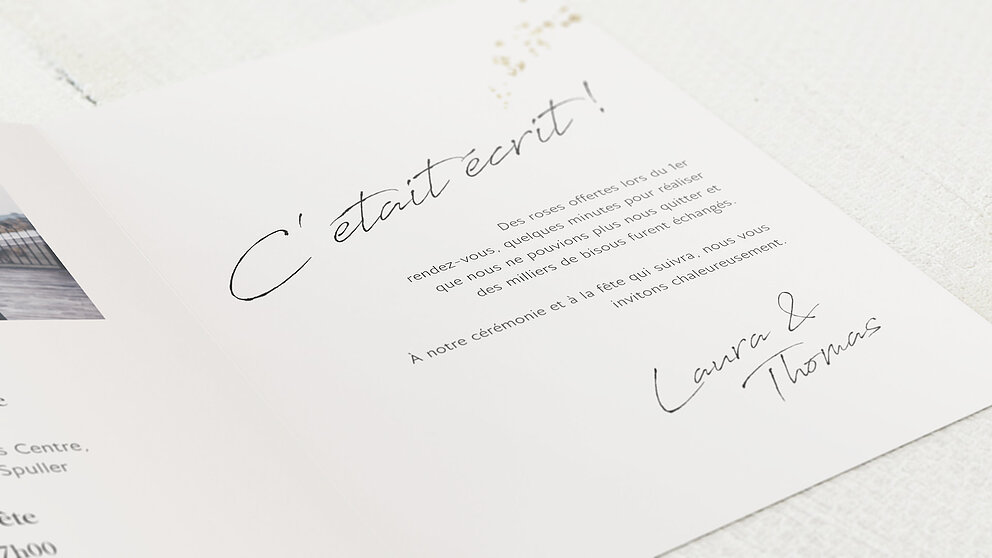 C'était écrit !
Des roses offertes lors du 1er
rendez-vous, quelques minutes pour réaliser
que nous ne pouvions plus nous quitter et
des milliers de bisous furent échangés.
À notre cérémonie et à la fête qui suivra, nous vous
invitons chaleureusement.
Laura &
Thomas
Centre,
Spuller